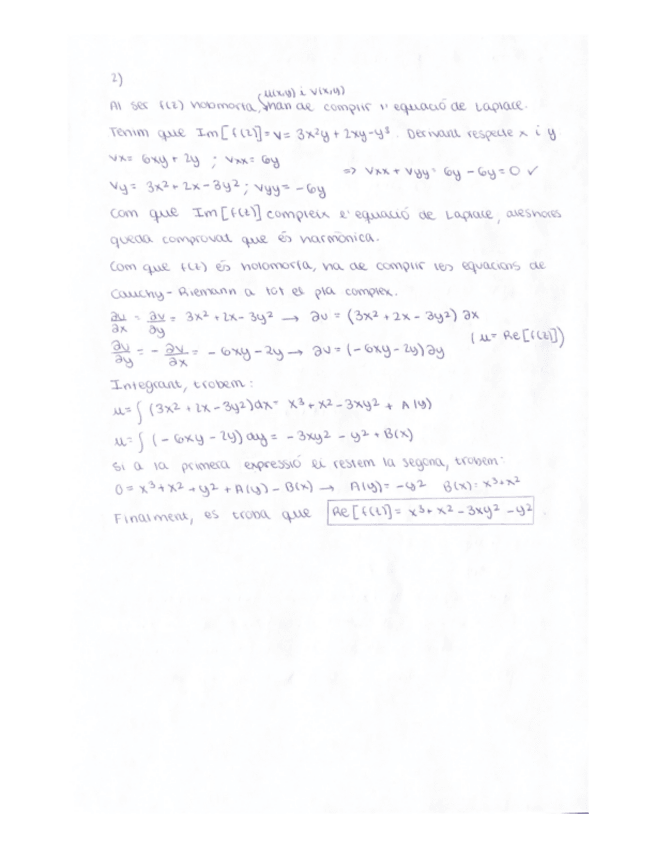 2)
u(x,y) i v(x,y)
Al ser f(z) holomorfa, s'han de complir l'equació de Laplace.
Tenim que Im[f(z)] = v = 3x²y + 2xy - y³. Derivant respecte x i y
vx = 6xy + 2y ; vxx = 6y
=> vxx + vyy = 6y - 6y = 0 ✓
vy = 3x² + 2x - 3y² ; vyy = -6y
Com que Im[f(z)] compleix l'equació de Laplace, aleshores
queda comprovat que és harmònica.
Com que f(z) és holomorfa, ha de complir les equacions de
Cauchy-Riemann a tot el pla complex.
∂u/∂x = ∂v/∂y = 3x² + 2x - 3y² → ∂u = (3x² + 2x - 3y²) ∂x
(u = Re[f(z)])
∂u/∂y = - ∂v/∂x = -6xy - 2y → ∂u = (-6xy - 2y) ∂y
Integrant, trobem:
u = ∫ (3x² + 2x - 3y²)dx = x³ + x² - 3xy² + A(y)
u = ∫ (-6xy - 2y) dy = -3xy² - y² + B(x)
Si a la primera expressió li restem la segona, trobem:
0 = x³ + x² + y² + A(y) - B(x) → A(y) = -y² B(x) = x³ + x²
Finalment, es troba que Re[f(z)] = x³ + x² - 3xy² - y²